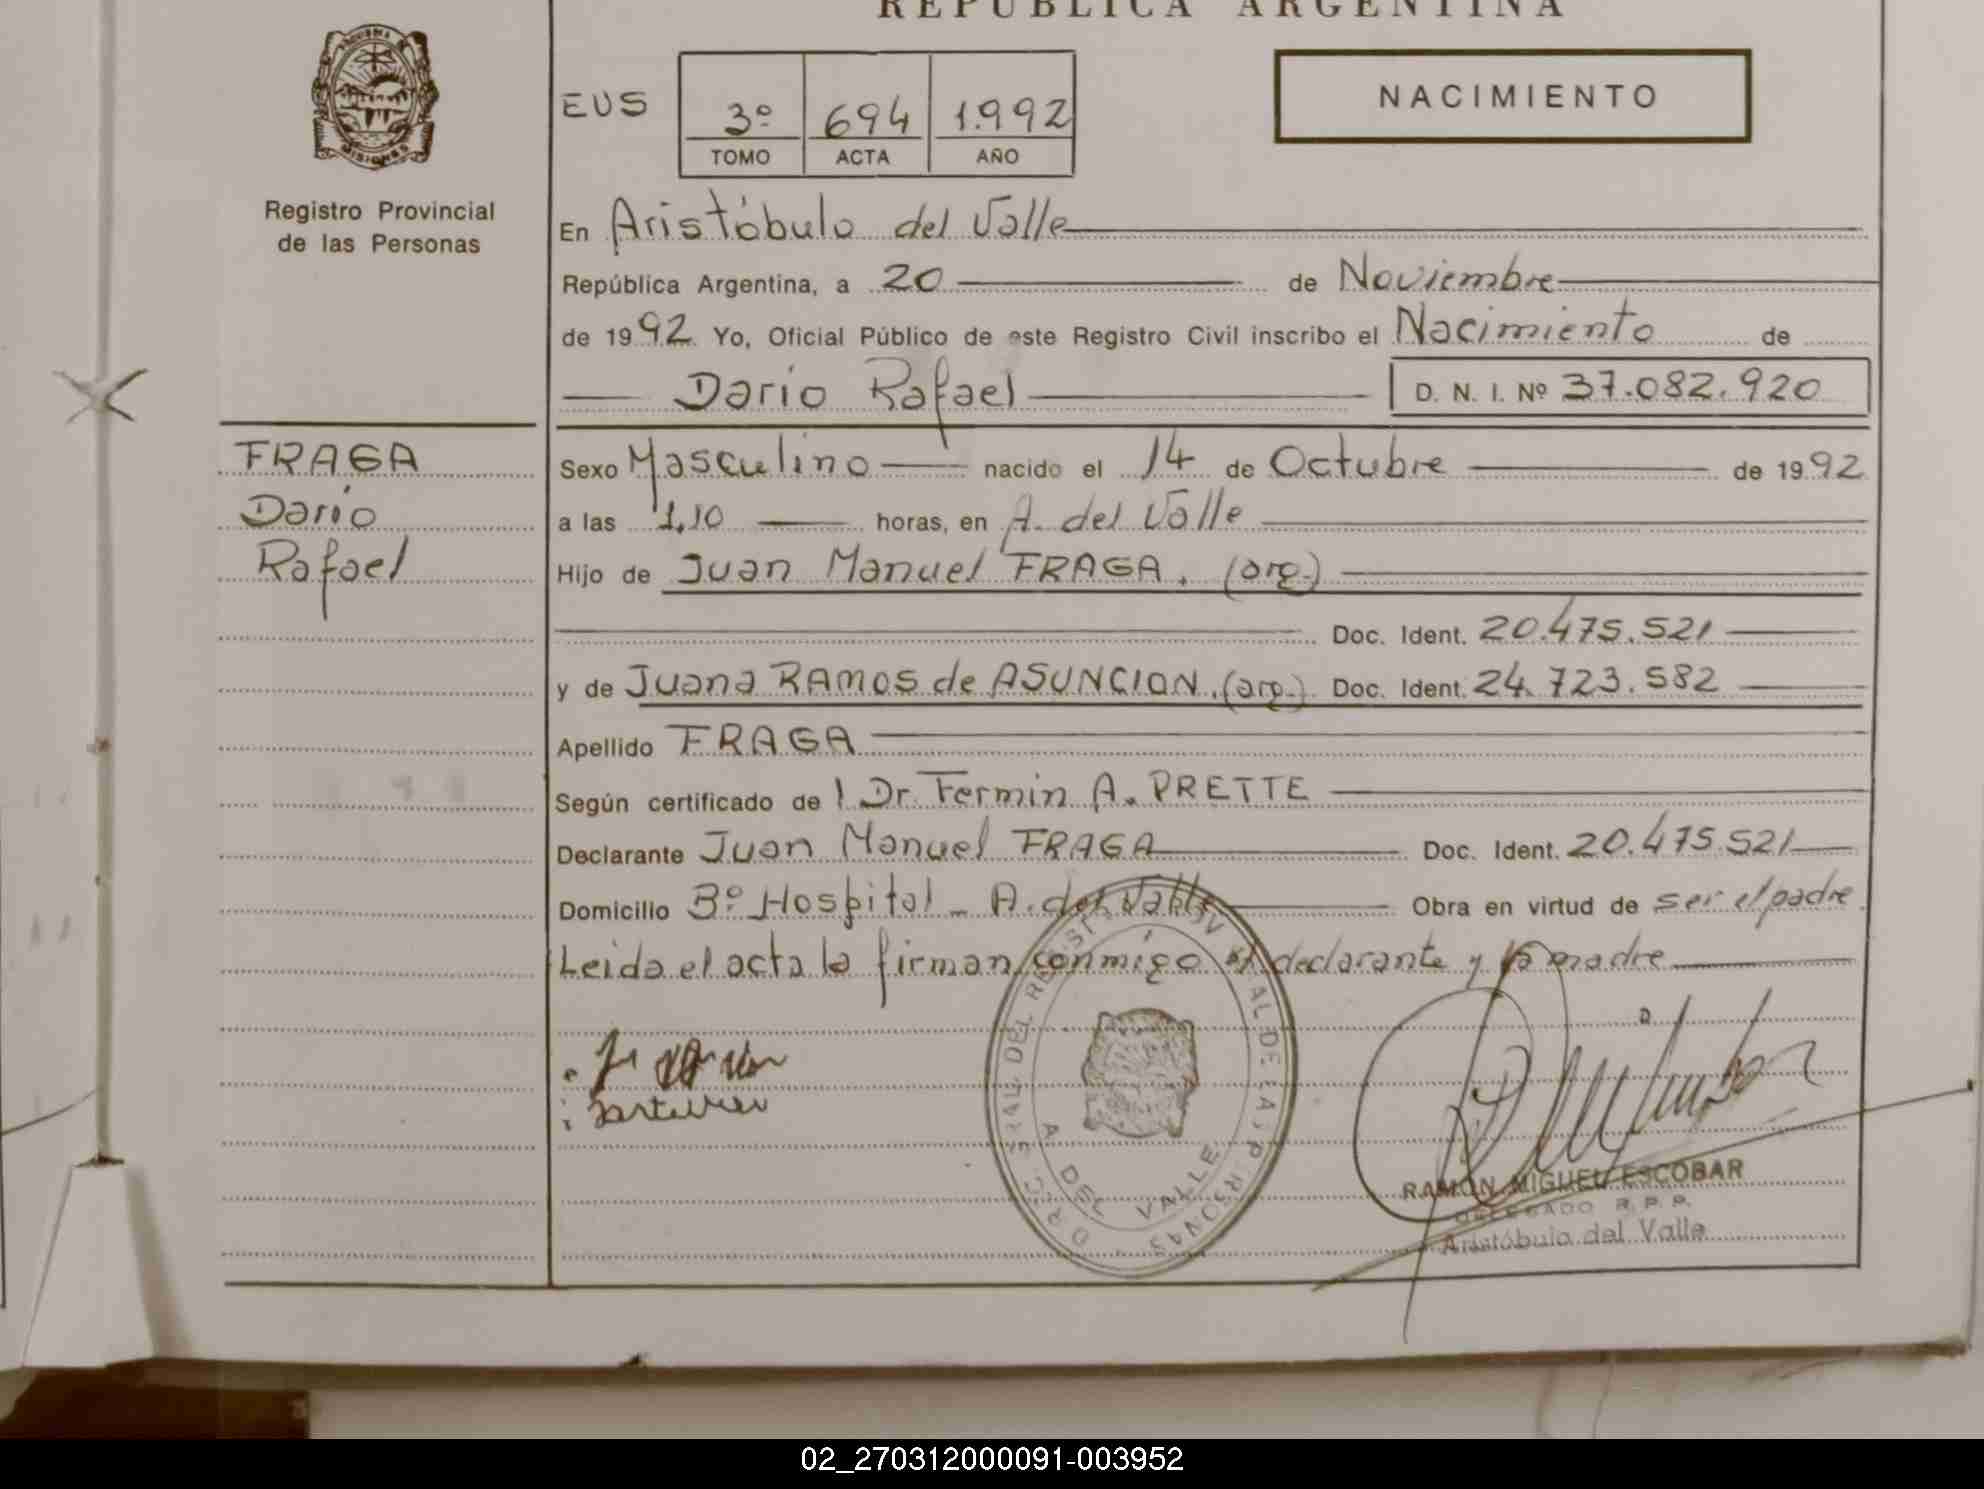 REPUBLICA ARGENTINA
MISIONES
Registro Provincial
de las Personas
EUS
3º 694 1.992
TOMO ACTA AÑO
NACIMIENTO
En Aristóbulo del Valle
República Argentina, a 20 de Noviembre
de 1992 Yo, Oficial Público de este Registro Civil inscribo el Nacimiento de
Dario Rafael D. N. I. Nº 37.082.920
FRAGA
Dario
Rafael
Sexo Masculino nacido el 14 de Octubre de 1992
a las 1.10 horas, en A. del Valle
Hijo de Juan Manuel FRAGA. (arg.)
Doc. Ident. 20.475.521
y de Juana RAMOS de ASUNCION. (arg.) Doc. Ident. 24.723.582
Apellido FRAGA
Según certificado de l Dr. Fermin A. PRETTE
Declarante Juan Manuel FRAGA Doc. Ident. 20.475.521
Domicilio Bº Hospital - A. del Valle Obra en virtud de ser el padre
Leida el acta la firman conmigo el declarante y la madre
A DEL VALLE
RAMON MIGUEL ESCOBAR
DELEGADO R. P. P.
Aristóbulo del Valle
02_270312000091-003952